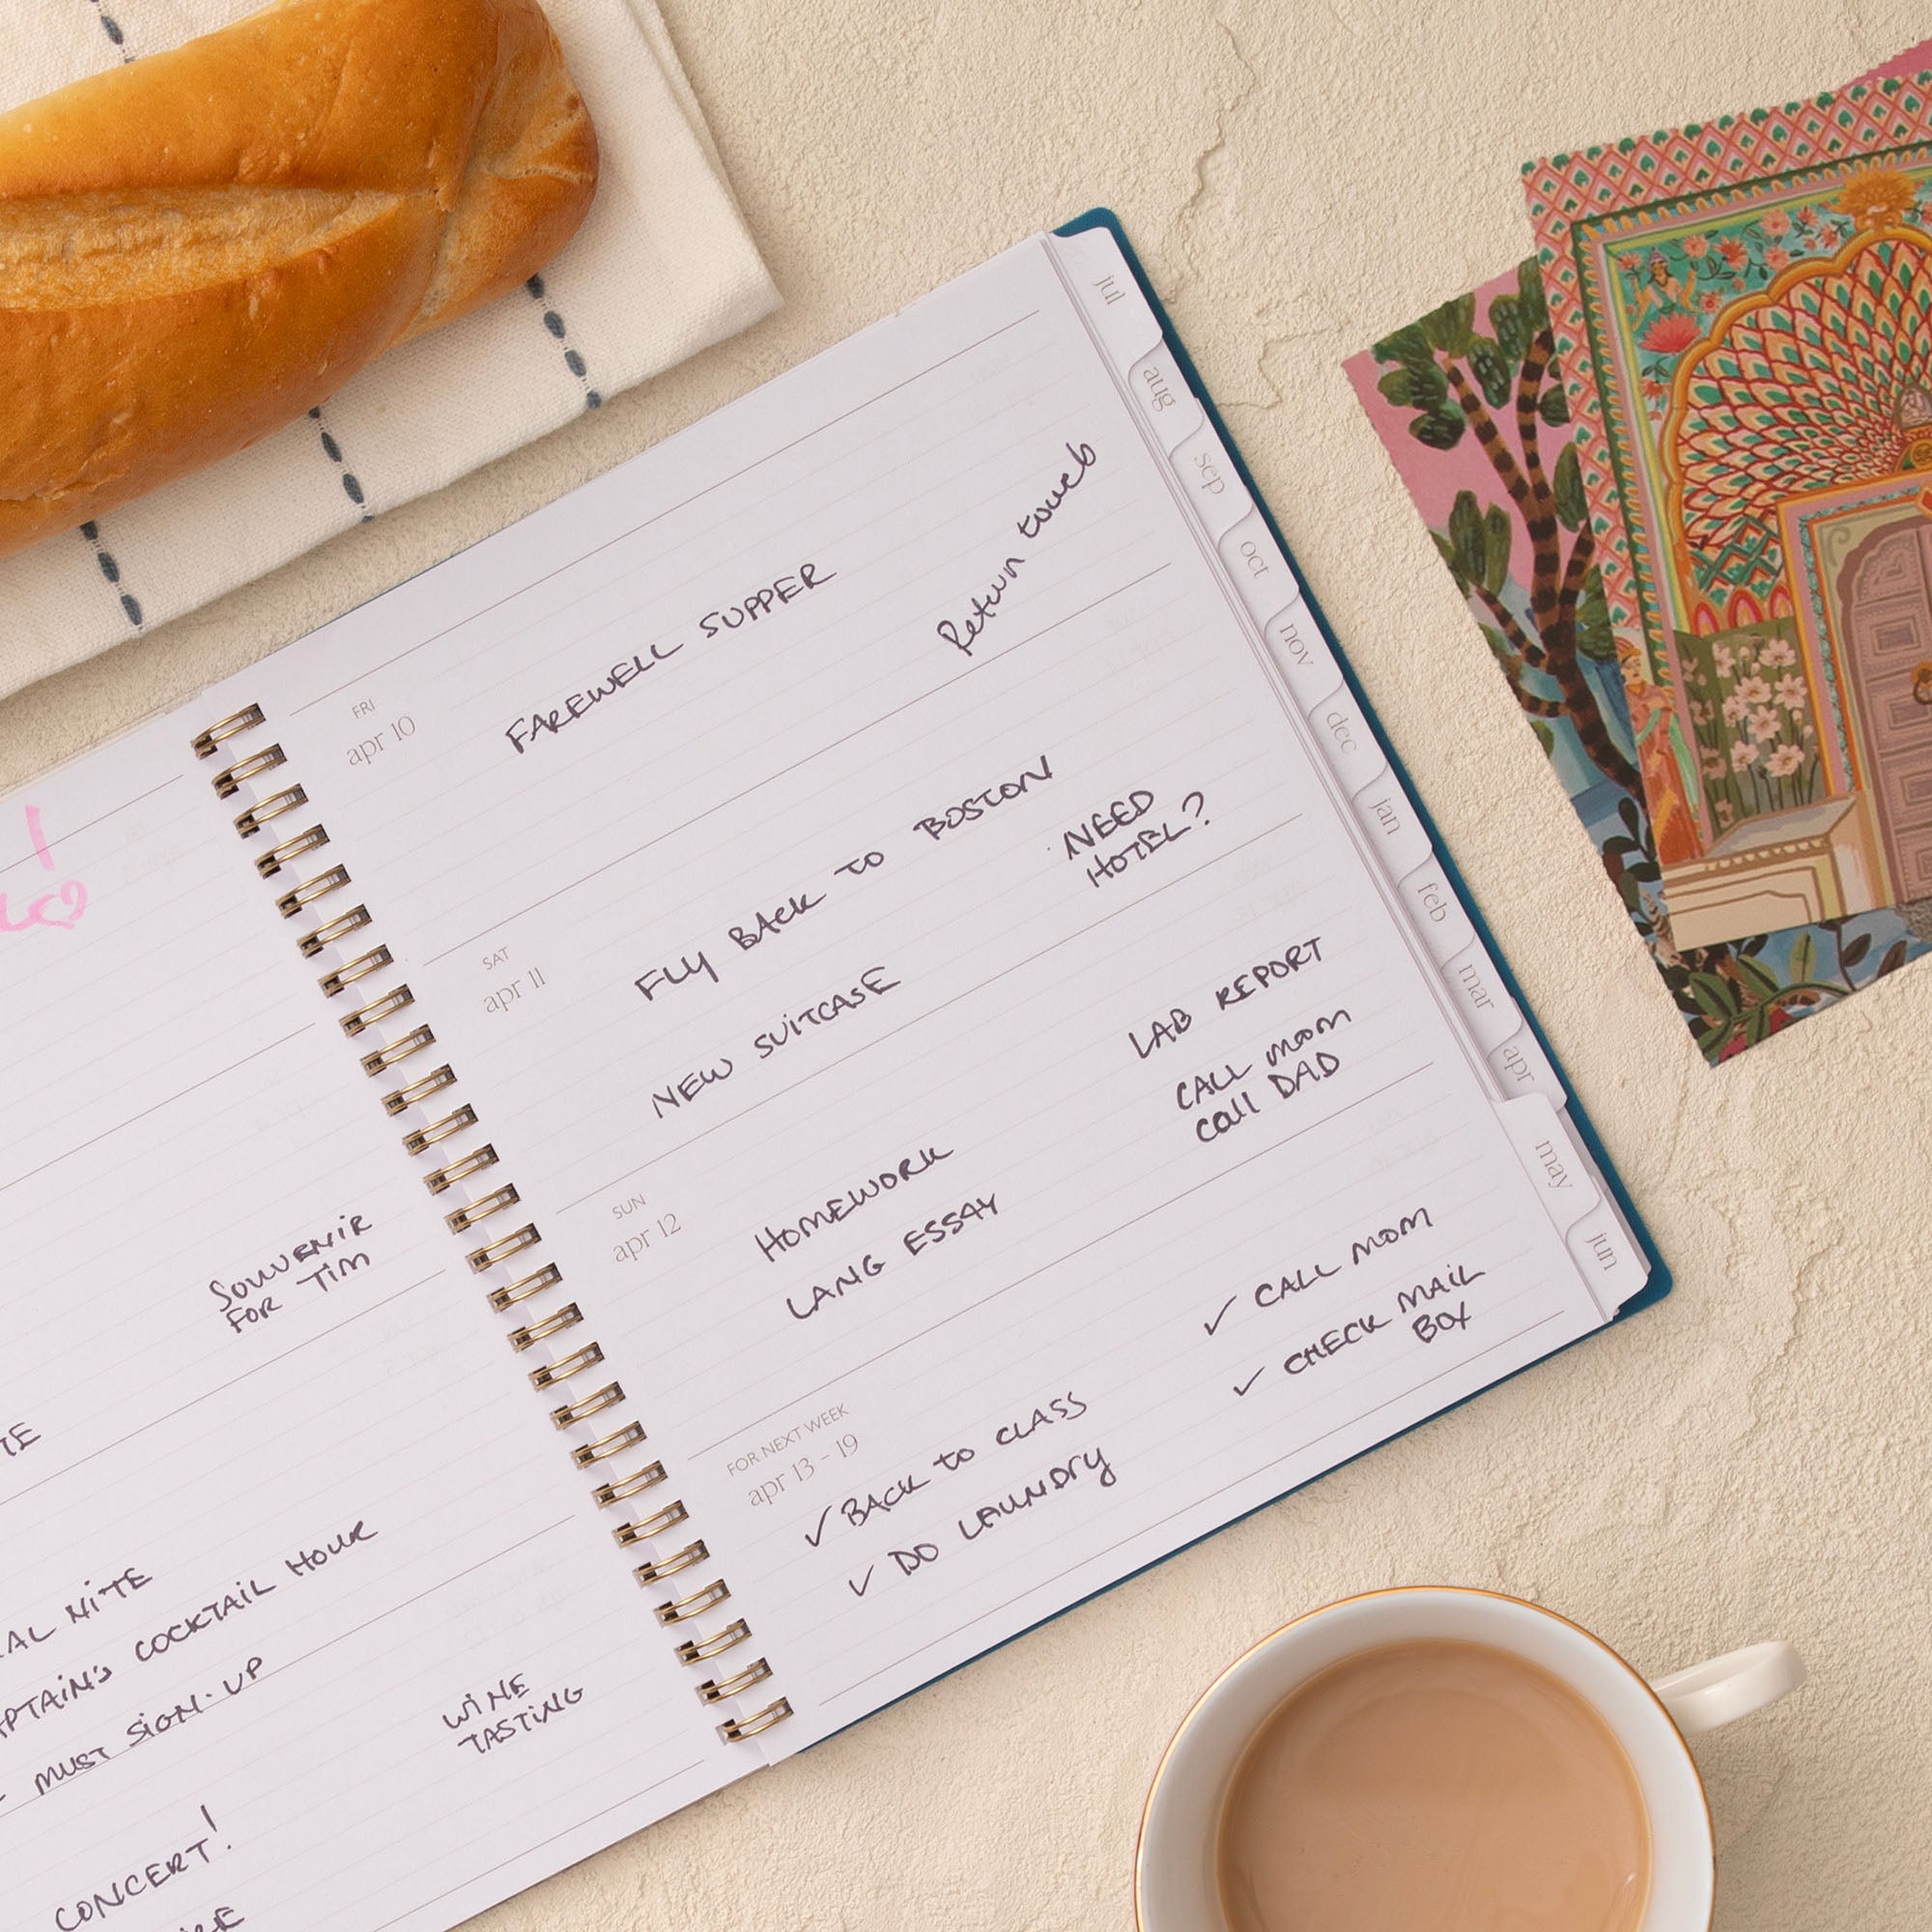 SOUVENIR
FOR TIM
NITE
CAPTAIN'S COCKTAIL HOUR
MUST SIGN-UP
WINE
TASTING
CONCERT!
FRI
apr 10
FAREWELL SUPPER
Return towels
SAT
apr 11
FLY BACK TO BOSTON
NEED
HOTEL?
NEW SUITCASE
SUN
apr 12
HOMEWORK
LANG ESSAY
LAB REPORT
CALL MOM
Call DAD
FOR NEXT WEEK
apr 13 - 19
✓ BACK to CLASS
✓ DO LAUNDRY
✓ CALL MOM
✓ CHECK MAIL
BOX
jul
aug
sep
oct
nov
dec
jan
feb
mar
apr
may
jun